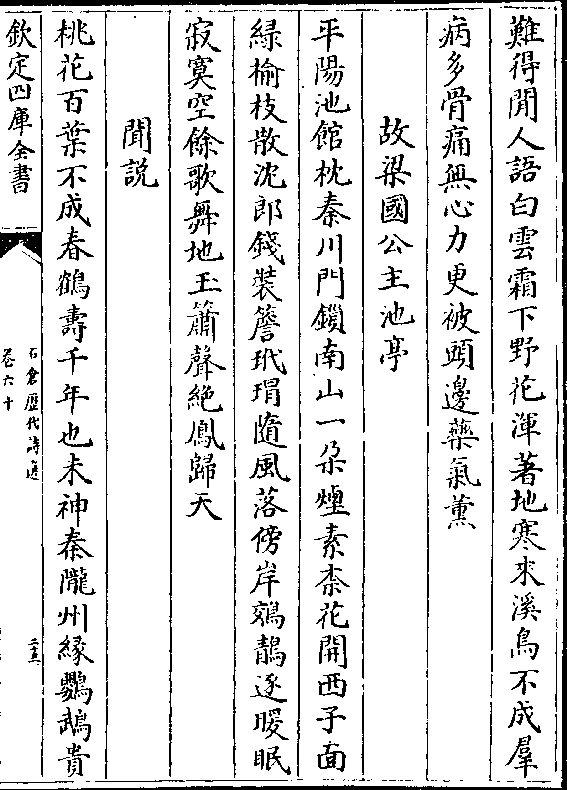 難得聞人語白雲霜下野花渾著地寒來溪鳥不成羣
病多骨痛無心力更被頭邊藥氣薰
故梁國公主池亭
平陽池館枕秦川門鎖南山一朶煙素柰花開西子面
緑榆枝散沈郎錢裝簷玳瑁隨風落傍岸鵁鶄逐暖眠
寂寞空餘歌舞地玉簫聲絶鳳歸天
聞説
桃花百葉不成春鶴壽千年也未神秦隴州縁鸚鵡貴
欽定四庫全書
石倉歴代詩選
卷六十
二十三